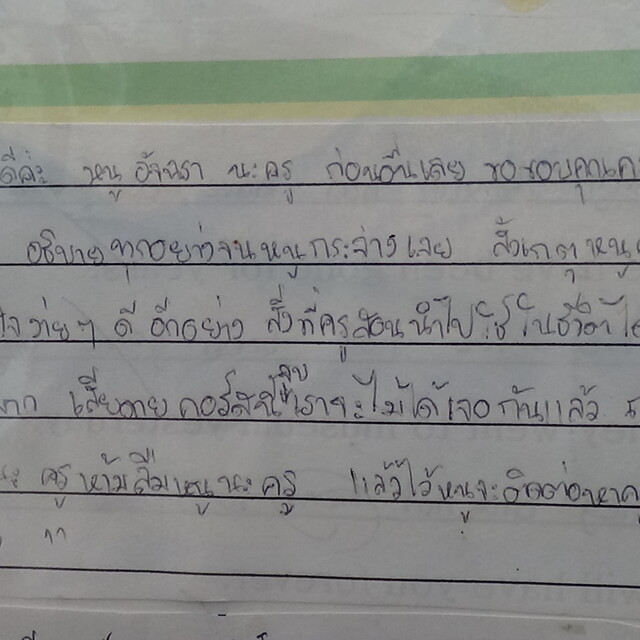 ดีค่ะ หนู อัจฉรา นะครู ก่อนอื่นเลย ขอขอบคุณค
อธิบายทุกอย่างจนหนูกระจ่างเลย สังเกตุหนู
ใจง่ายๆ ดี อีกอย่าง สิ่งที่ครูสอนนำไปใช้ในชีวิตได้
เสียดายคอร์สนี้จบเราจะไม่ได้เจอกันแล้ว
นะ ครูห้ามลืมหนูนะครู แล้วไว้หนูจะติดต่อหาค